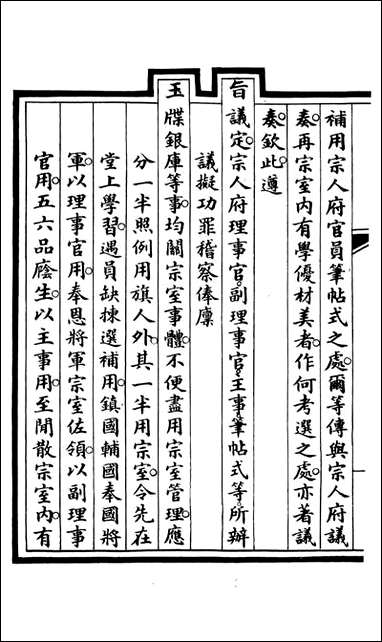 補用宗人府官員筆帖式之處爾等傳與宗人府議
奏再宗室內有學優材美者作何考選之處亦著議
奏欽此遵
旨議定宗人府理事官副理事官王事筆帖式等所辦
議擬功罪稽察俸廪
玉牒銀庫等事均關宗室事體不便盡用宗室管理應
分一半照例用旗人外其一半用宗室令先在
堂上學習遇員缺揀選補用鎮國輔國奉國將
軍以理事官用奉恩將軍宗室佐領以副理事
官用五六品廕生以主事用至閒散宗室內有